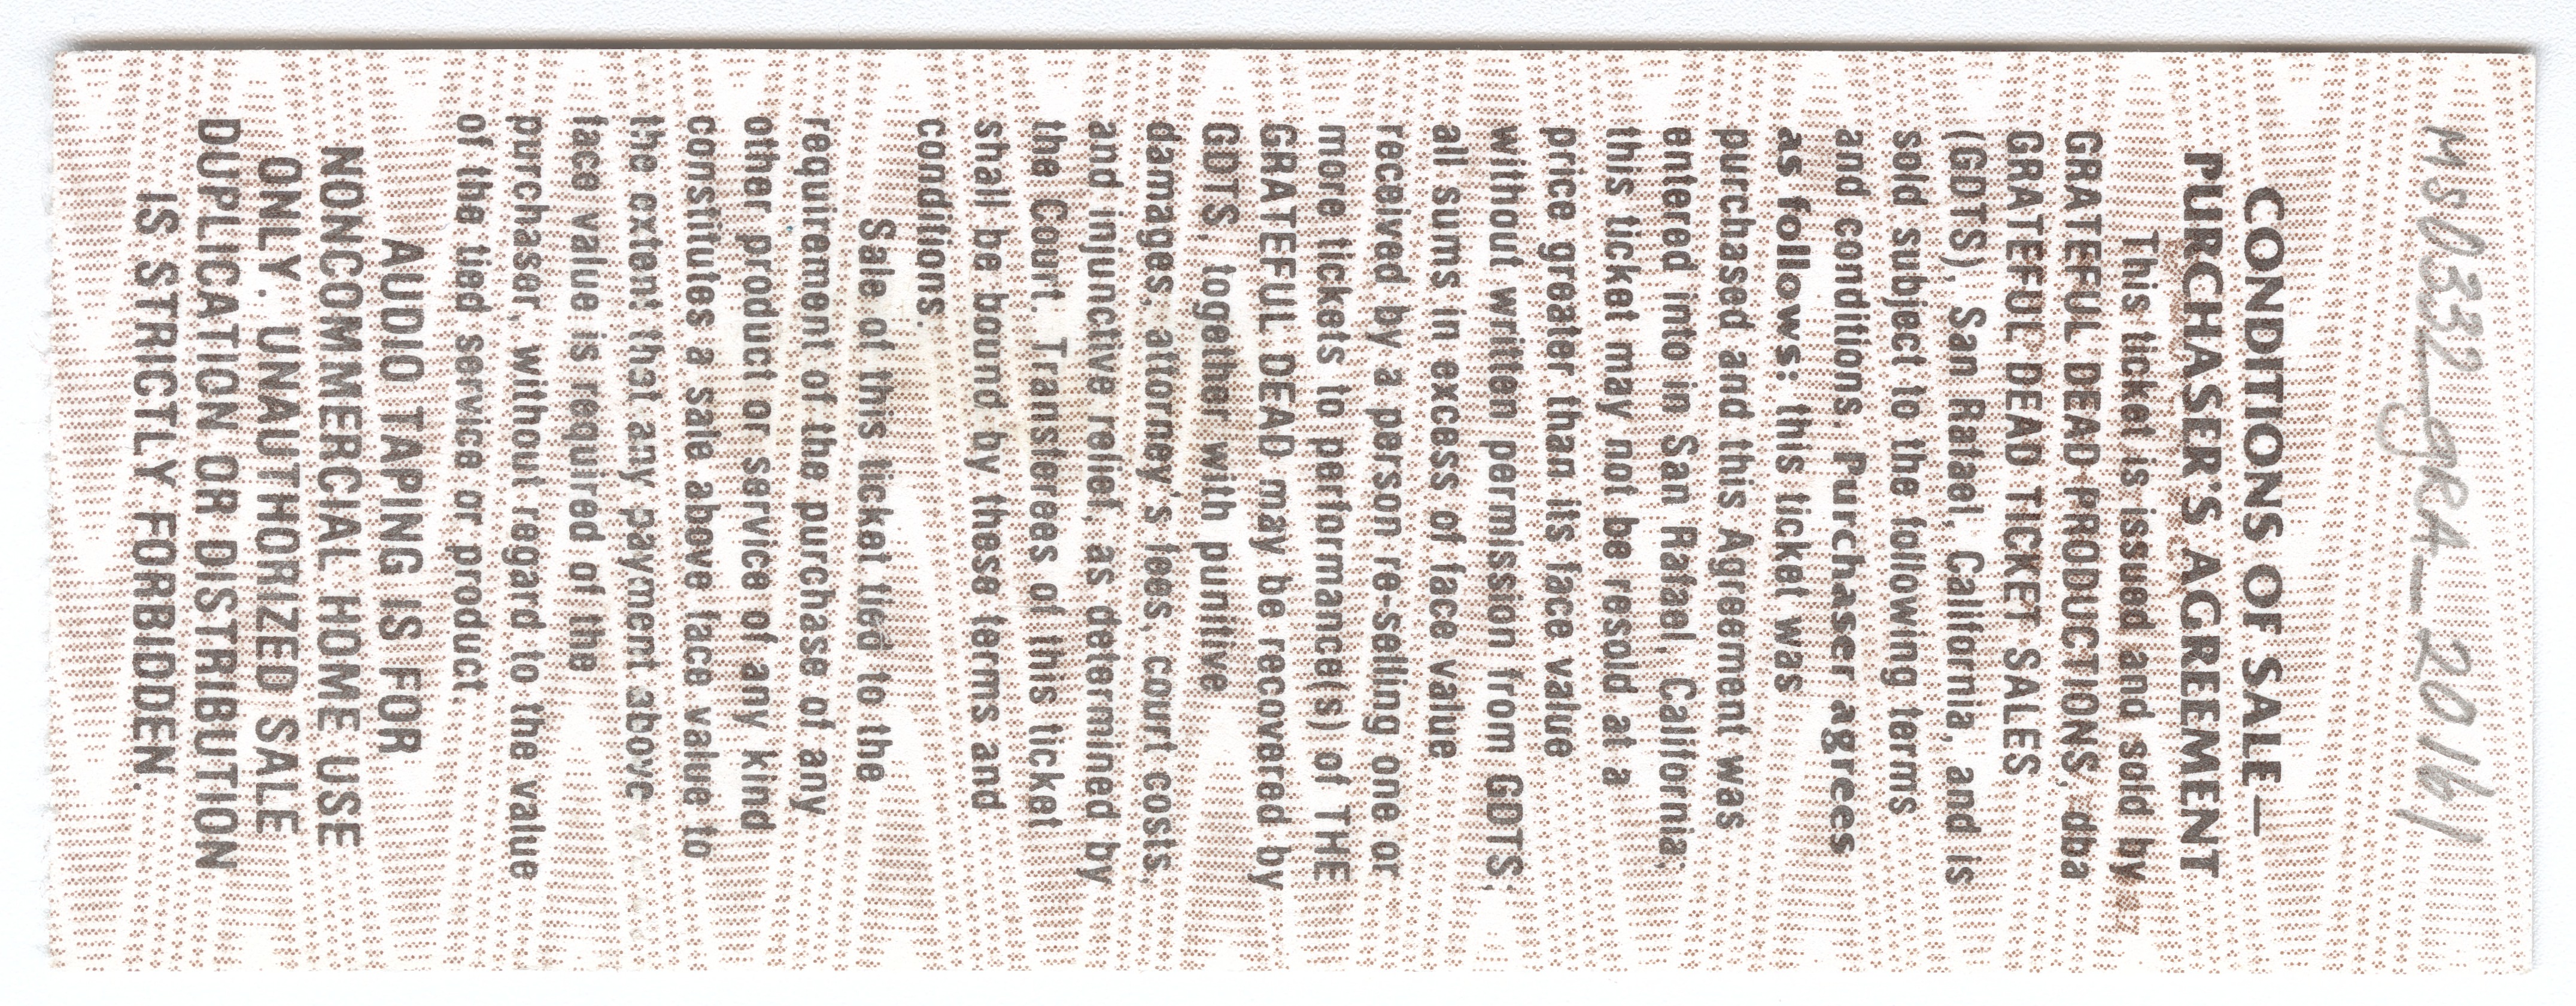 MS0332_gRA_20161
CONDITIONS OF SALE—
PURCHASER'S AGREEMENT
This ticket is issued and sold by
GRATEFUL DEAD PRODUCTIONS, dba
GRATEFUL DEAD TICKET SALES
(GDTS), San Rafael, California, and is
sold subject to the following terms
and conditions. Purchaser agrees
as follows: this ticket was
purchased and this Agreement was
entered into in San Rafael, California;
this ticket may not be resold at a
price greater than its face value
without written permission from GDTS;
all sums in excess of face value
received by a person re-selling one or
more tickets to performance(s) of THE
GRATEFUL DEAD may be recovered by
GDTS, together with punitive
damages, attorney's fees, court costs,
and injunctive relief, as determined by
the Court. Transferees of this ticket
shall be bound by these terms and
conditions.
Sale of this ticket tied to the
requirement of the purchase of any
other product or service of any kind
constitutes a sale above face value to
the extent that any payment above
face value is required of the
purchaser, without regard to the value
of the tied service or product.
AUDIO TAPING IS FOR
NONCOMMERCIAL HOME USE
ONLY. UNAUTHORIZED SALE
DUPLICATION OR DISTRIBUTION
IS STRICTLY FORBIDDEN.